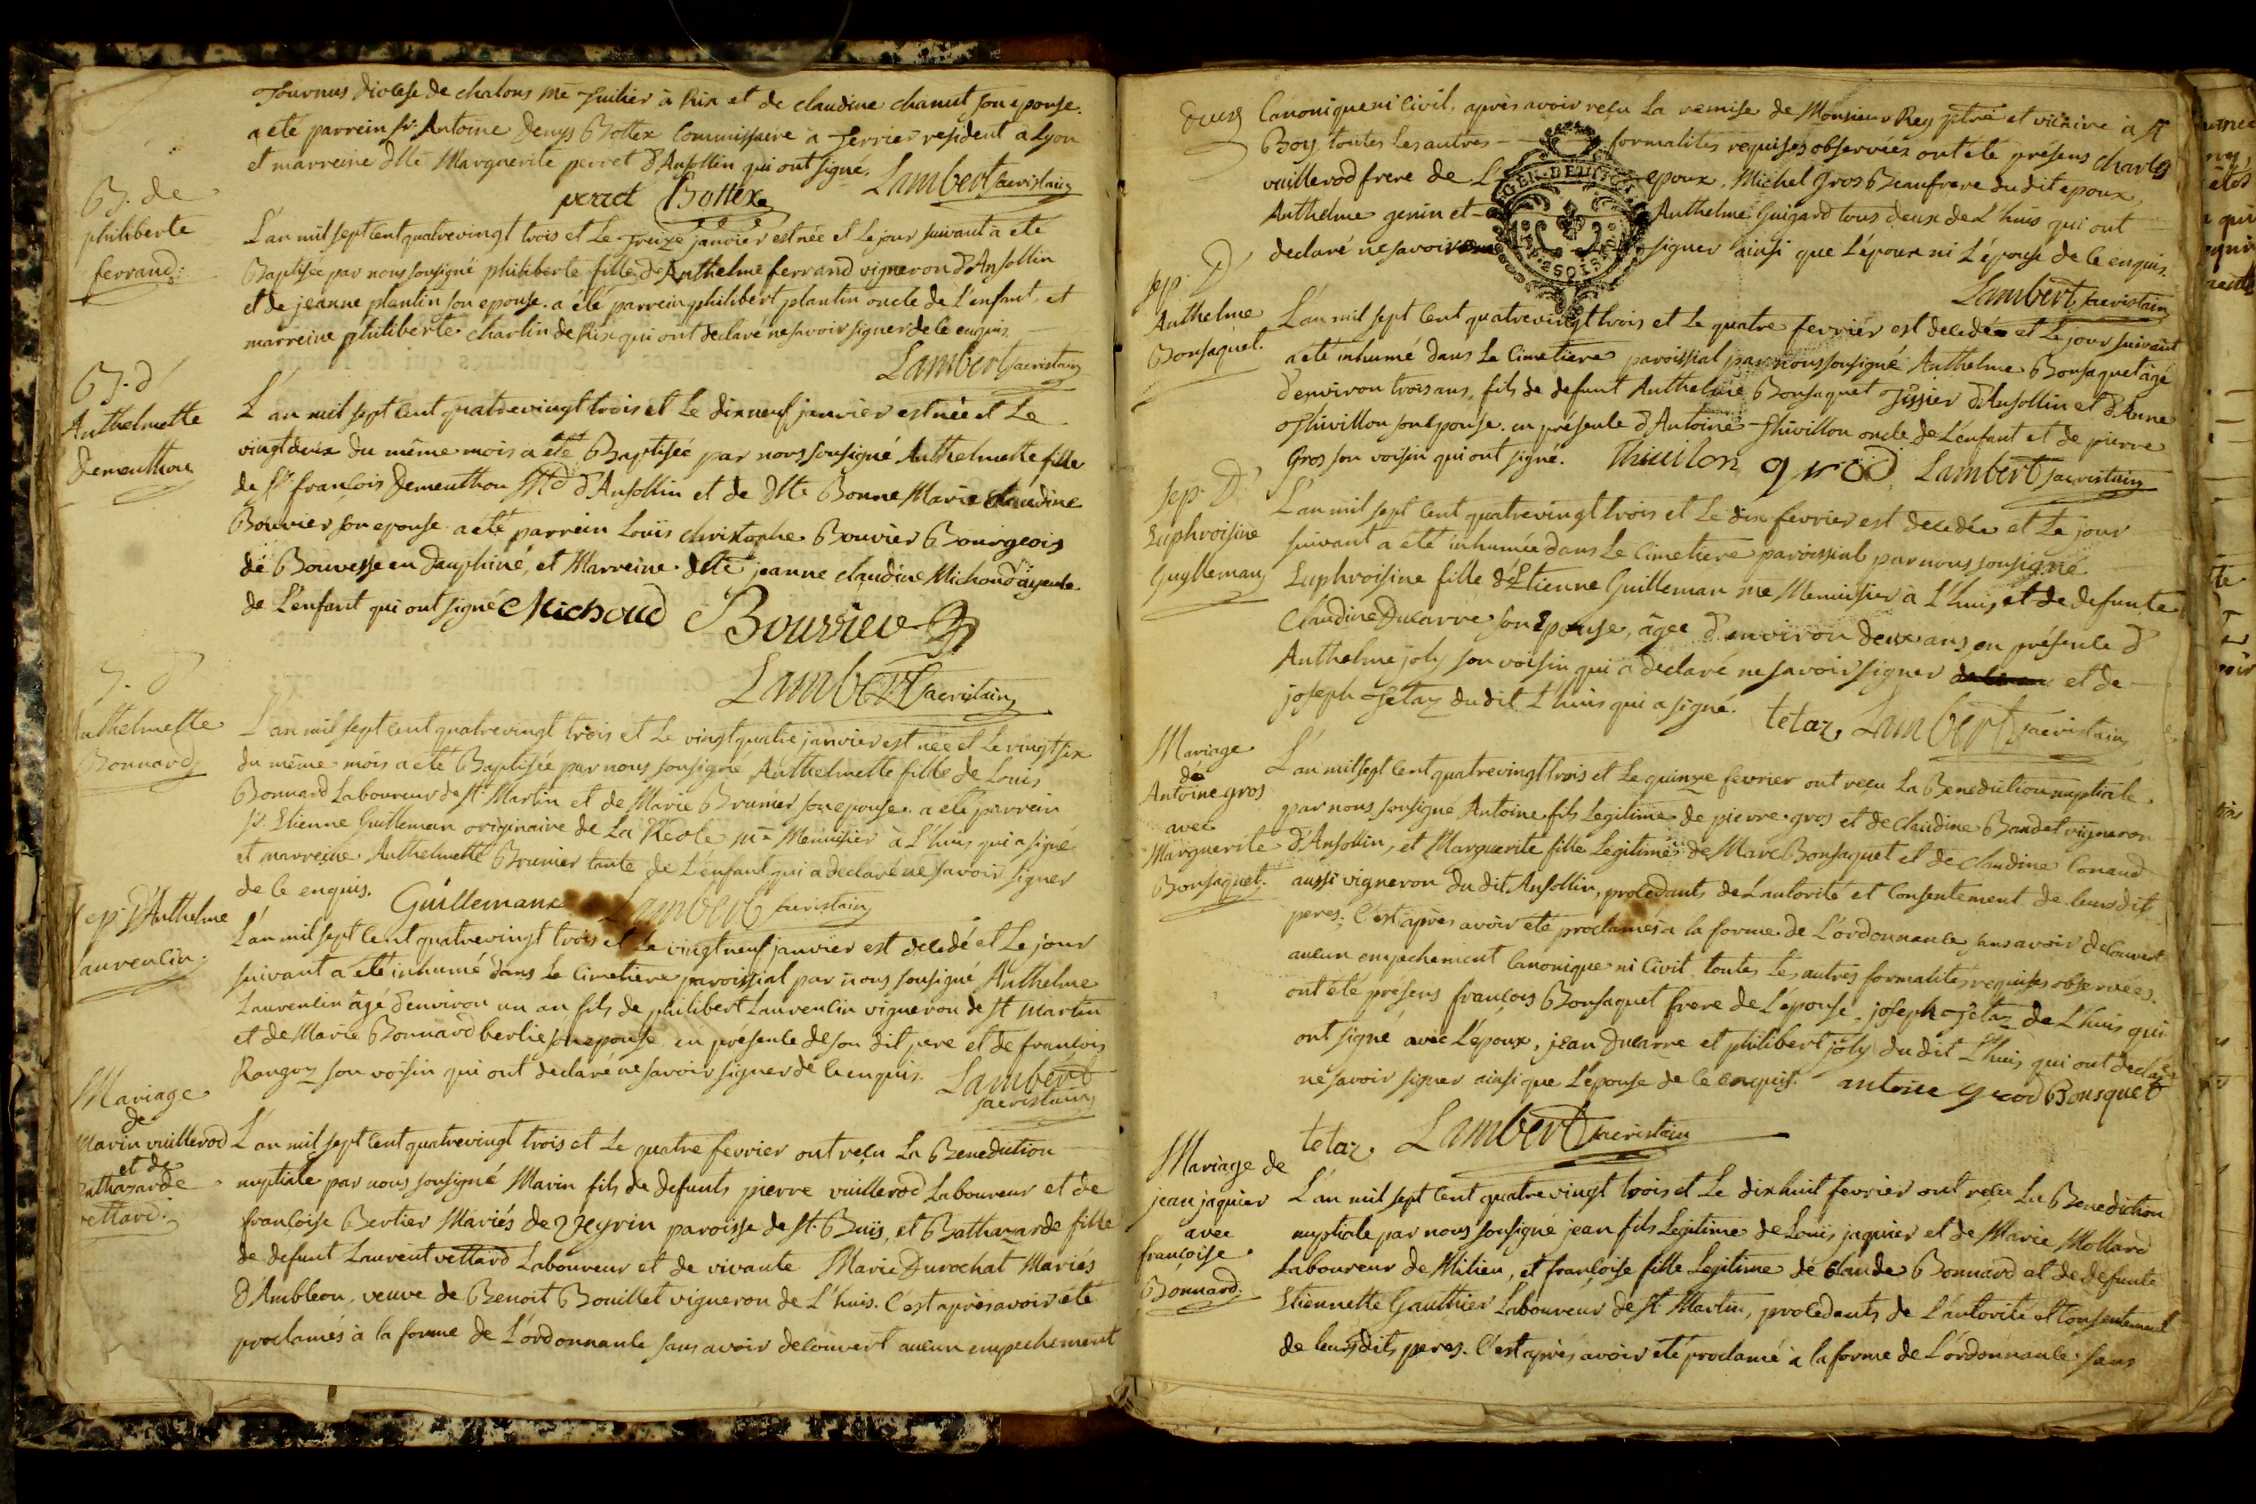 Tournus diocese de chalons me Tuilier à Rix et de claudine chanut son epouse.
a eté parrein sr. Antoine Denys Bottex Commissaire à Terrier resident à Lyon
et marreine dlle Marguerite perret d'Ansollin qui ont signé.
perret Bottex Lambert sacristain
B. de
philiberte
ferrand.
L'an mil sept cent quatrevingt trois et Le treize janvier est née et Le jour suivant a eté
Baptisée par nous soussigné philiberte fille d'Anthelme ferrand vigneron d'Ansollin
et de jeanne plantin son epouse. a été parrein philibert plantin oncle de L'enfant, et
marreine philiberte charlin de Rix qui ont declaré ne savoir signer de ce enquis.
Lambert sacristain
B. d'
Anthelmette
Demeuthon
L'an mil sept cent quatrevingt trois et Le dixneuf janvier est née et Le
vingt deux du même mois a eté Baptisée par nous soussigné Anthelmette fille
de sr. françois Demeuthon Md d'Ansollin et de dlle Bonne Marie claudine
Bouvier son epouse. a eté parrein Louïs christophe Bouvier Bourgeois
de Bouvesse en Dauphiné, et Marreine dlle jeanne claudine Michoud ayeule
de L'enfant qui ont signé Michoud Bouvier
Lambert sacristain
B. d'
Anthelmette
Bonnard
L'an mil sept cent quatrevingt trois et Le vingt quatre janvier est née et Le vingt six
du même mois a eté Baptisée par nous soussigné Anthelmette fille de Louis
Bonnard Laboureur de st Martin et de Marie Brunier son epouse. a eté parrein
sr. Etienne Guilleman originaire de La Réole me Menuisier à L'huis qui a signé
et marreine Anthelmette Brunier tante de L'enfant qui a declaré ne savoir signer
de ce enquis. Guillemans Lambert sacristain
sep. d'Anthelme
Laurencin.
L'an mil sept cent quatrevingt trois et Le vingt neuf janvier est decedé et Le jour
suivant a été inhumé dans Le Cimetiere paroissial par nous soussigné Anthelme
Laurencin âgé d'environ un an fils de philibert Laurencin vigneron de st Martin
et de Marie Bonnard berlie son epouse en présence de son dit pere et de françois
Rangoz son voisin qui ont declaré ne savoir signer de ce enquis. Lambert
sacristain
Mariage
de
Marin vuillerod
et de
Bathazarde
vettard.
L'an mil sept cent quatrevingt trois et Le quatre fevrier ont reçu La Benediction
nuptiale par nous soussigné Marin fils de defunts pierre vuillerod Laboureur et de
françoise Bertier Mariés de veyrin paroisse de st. Bois, et Bathazarde fille
de defunt Laurent vettard Laboureur et de vivante Marie Durochat Mariés
d'Ambleon, veuve de Benoit Bouillet vigneron de L'huis. C'est après avoir été
proclamés à la forme de L'ordonnance sans avoir decouvert aucun empechement
Canonique ni Civil, après avoir reçu La remise de Monsieur Rey ptre et vicaire à st
Bois, toutes Les autres formalités requises observées ont été présens charles
vuillerod frere de L'epoux, Michel Gros Beaufrere du dit epoux,
Anthelme genin et Anthelme Guigard tous deux de L'huis qui ont
declaré ne savoir signer ainsi que L'époux ni L'épouse de ce enquis.
GEN. DE DIJON
Lambert sacristain
sep. D'
Anthelme
Bonsaquet.
L'an mil sept cent quatrevingt trois et Le quatre fevrier est decedé et Le jour suivant
a été inhumé dans Le Cimetiere paroissial par nous soussigné Anthelme Bonsaquet âgé
d'environ trois ans, fils de defunt Anthelme Bonsaquet Tissier d'Ansollin et d'Anne
Thivillon son epouse. en présence d'Antoine Thivillon oncle de L'enfant et de pierre
Gros son voisin qui ont signé. Thivilon gros Lambert sacristain
sep. D'
Euphroisine
Guylleman
L'an mil sept cent quatrevingt trois et Le dix fevrier est decedée et Le jour
suivant a été inhumée dans Le Cimetiere paroissial par nous soussigné
Euphroisine fille d'Etienne Guilleman me Menuisier à L'huis, et de defunte
Claudine Ducarre son Epouse, âgée d'environ deux ans en présence d'
Anthelme joly son voisin qui a declaré ne savoir signer et de
joseph Tetaz du dit L'huis qui a signé. tetaz, Lambert sacristain
Mariage
de
Antoine gros
avec
Marguerite
Bonsaquet.
L'an mil sept cent quatrevingt trois et Le quinze fevrier ont reçu La Benediction nuptiale
par nous soussigné Antoine fils Legitime de pierre gros et de claudine Bandet vigneron
d'Ansollin, et Marguerite fille Legitime de Marc Bonsaquet et de claudine Conand
aussi vigneron du dit Ansollin, procedants de L'autorité et Consentement de leurs dits
peres. C'est après avoir eté proclamés à la forme de L'ordonnance sans avoir decouvert
aucun empechement Canonique ni Civil, toutes Les autres formalités requises observées.
ont été présens françois Bonsaquet frere de L'épouse, joseph Tetaz de L'huis qui
ont signé avec L'époux, jean Ducarre et philibert joly du dit L'huis, qui ont declaré
ne savoir signer ainsi que L'épouse de ce enquis. antoine gros Bonsquet
tetaz. Lambert sacristain
Mariage de
jean jaquier
avec
françoise
Bonnard.
L'an mil sept cent quatre vingt trois et Le dixhuit fevrier ont reçu La Benediction
nuptiale par nous soussigné jean fils Legitime de Louis jaquier et de Marie Mollard
Laboureur de Milieu, et françoise fille Legitime de Claude Bonnard et de defunte
Etiennette Gauthier Laboureur de st Martin, procedants de L'autorité et Consentement
de leurs dits peres. C'est après avoir été proclamé à la forme de L'ordonnance sans